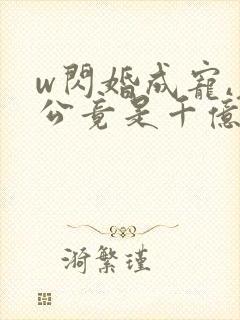 w閃婚成寵,
公竟是千億
漪繁瑾